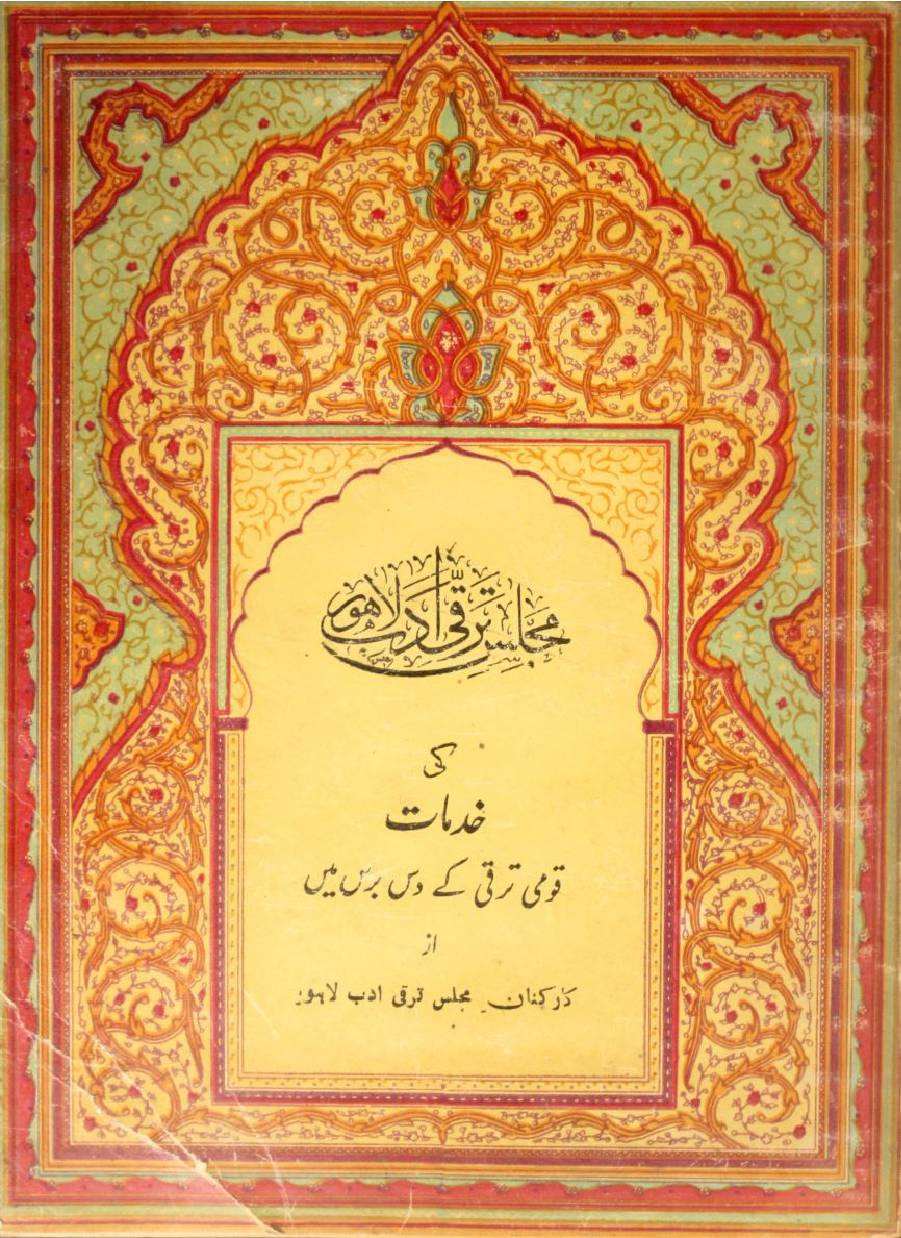 مجلس ترقّی ادب لاہور
کی
خدمات
قومی ترقی کے دس برس میں
از
کارکنان مجلس ترقی ادب لاہور